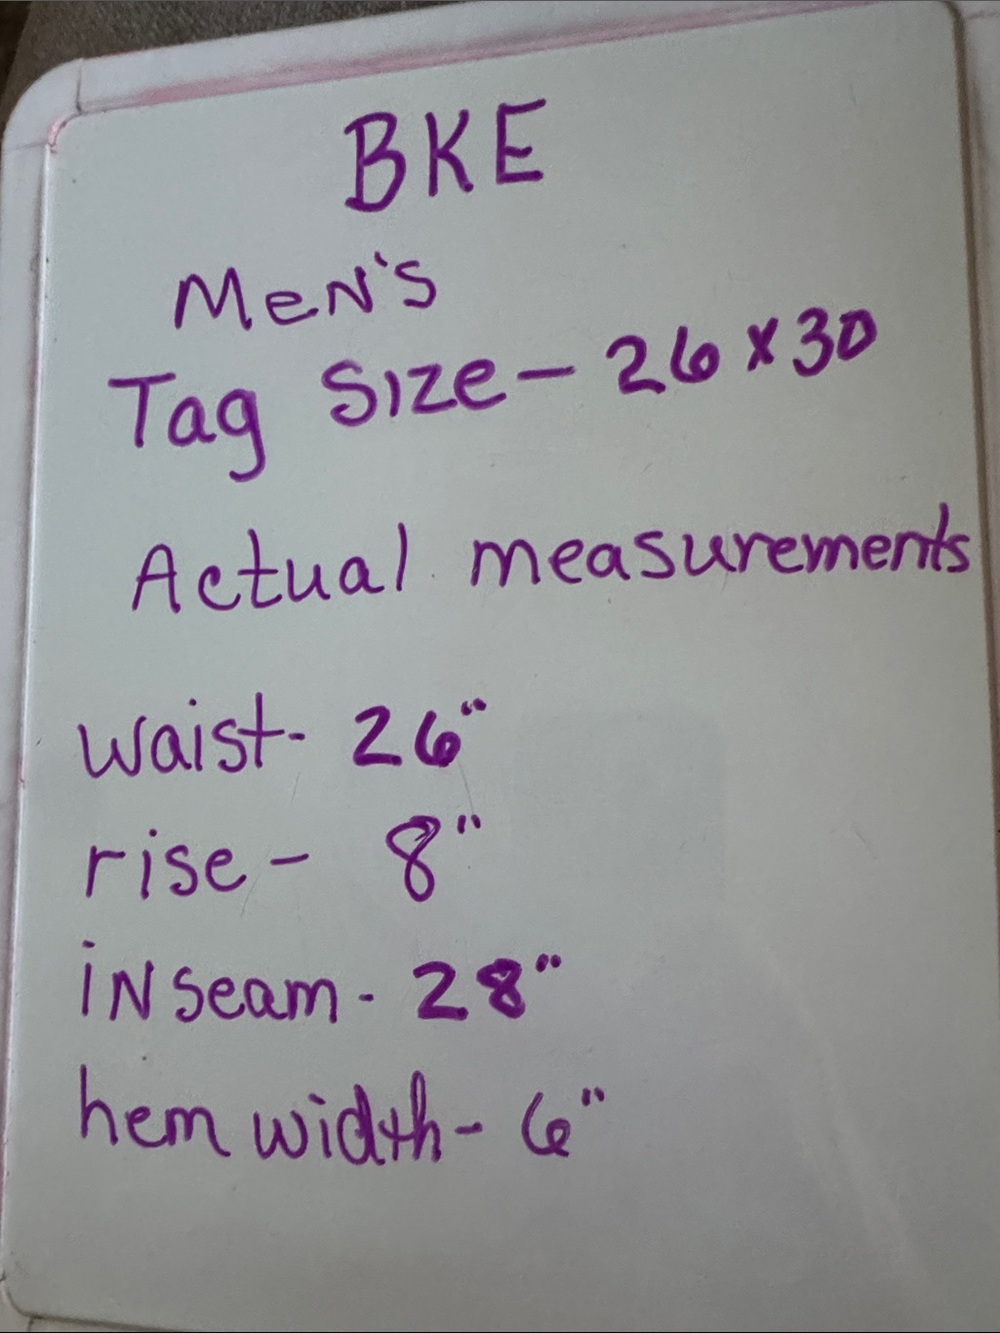 BKE
Men's
Tag Size - 26 x 30
Actual measurements
waist - 26"
rise - 8"
inseam - 28"
hem width - 6"